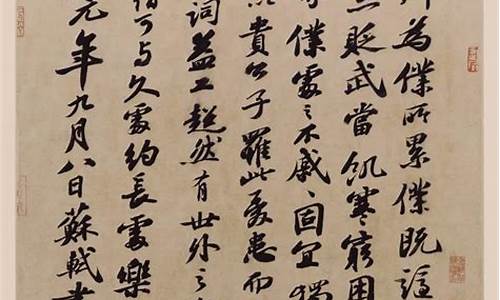 為僕所累僕既謫
貶武當飢寒窮困
僕處之不戚〻固宜獨
以貴公子罹此憂患而
詞益工超然有世外之
可与久處約長處樂
元年九月八日蘇軾書